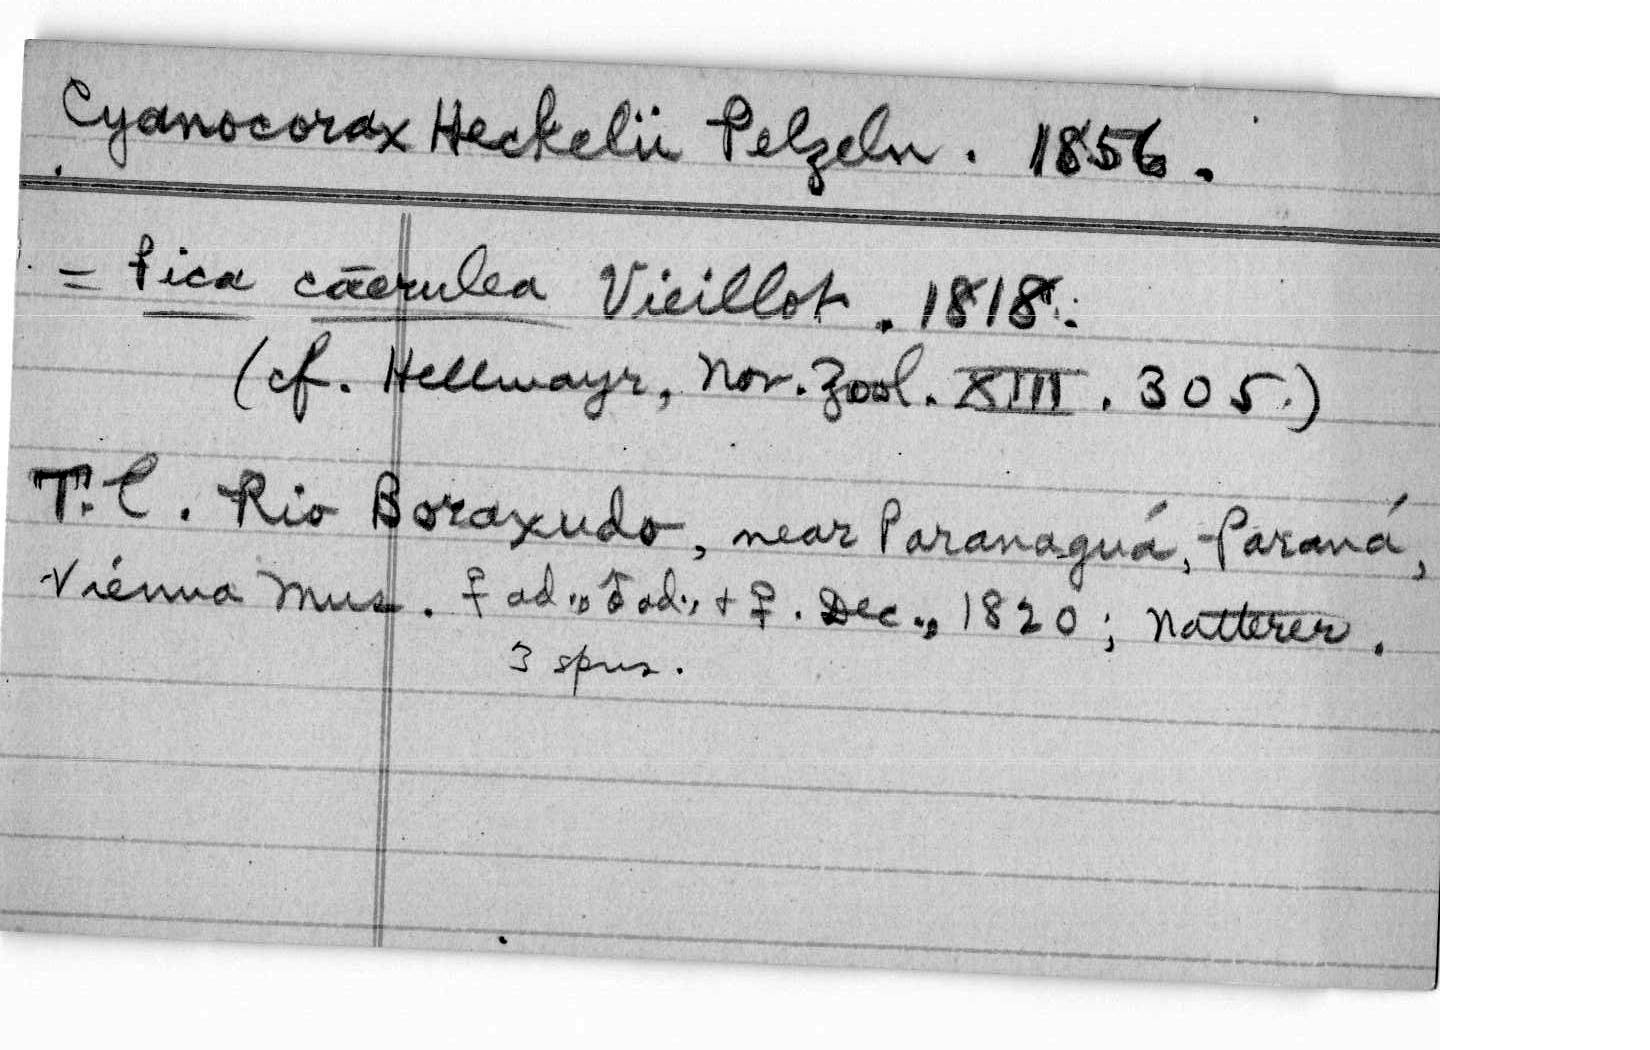 Cyanocorax Heckelii Pelzeln. 1856.
= Pica cāerulea Vieillot. 1818.
(cf. Hellmayr, Nov. Zool. XIII. 305.)
T.L. Rio Boraxudo, near Paranaguá, Paraná,
Vienna Mus. ♀ ad., ♂ ad., + ♀. Dec., 1820; Natterer.
3 spns.